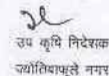 उप कृषि निदेशक
ज्योतिबाफूले नगर